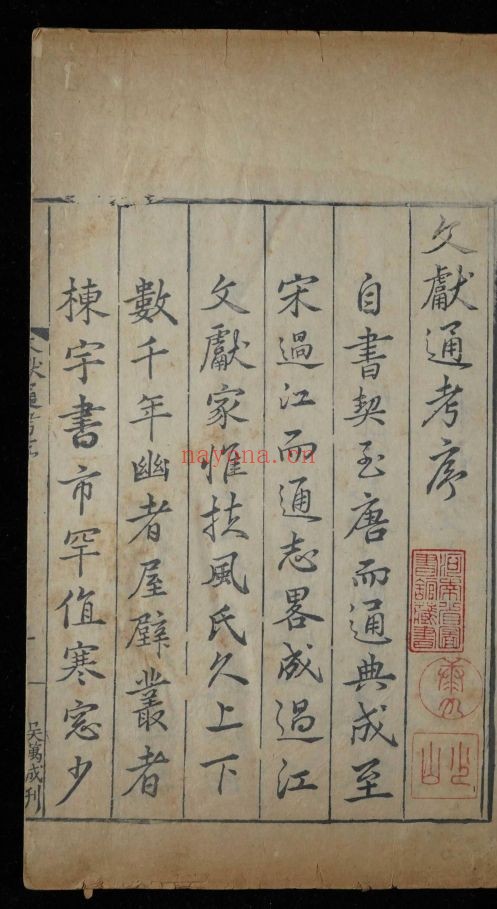 文獻通考序
自書契至唐而通典成至
宋過江而通志畧成過江
文獻家惟扶風氏久上下
數千年幽者屋壁叢者
棟宇書市罕值寒窓少
文獻通考序
一
吳萬成刊
河南省圖
書館藏書
nayona.cn